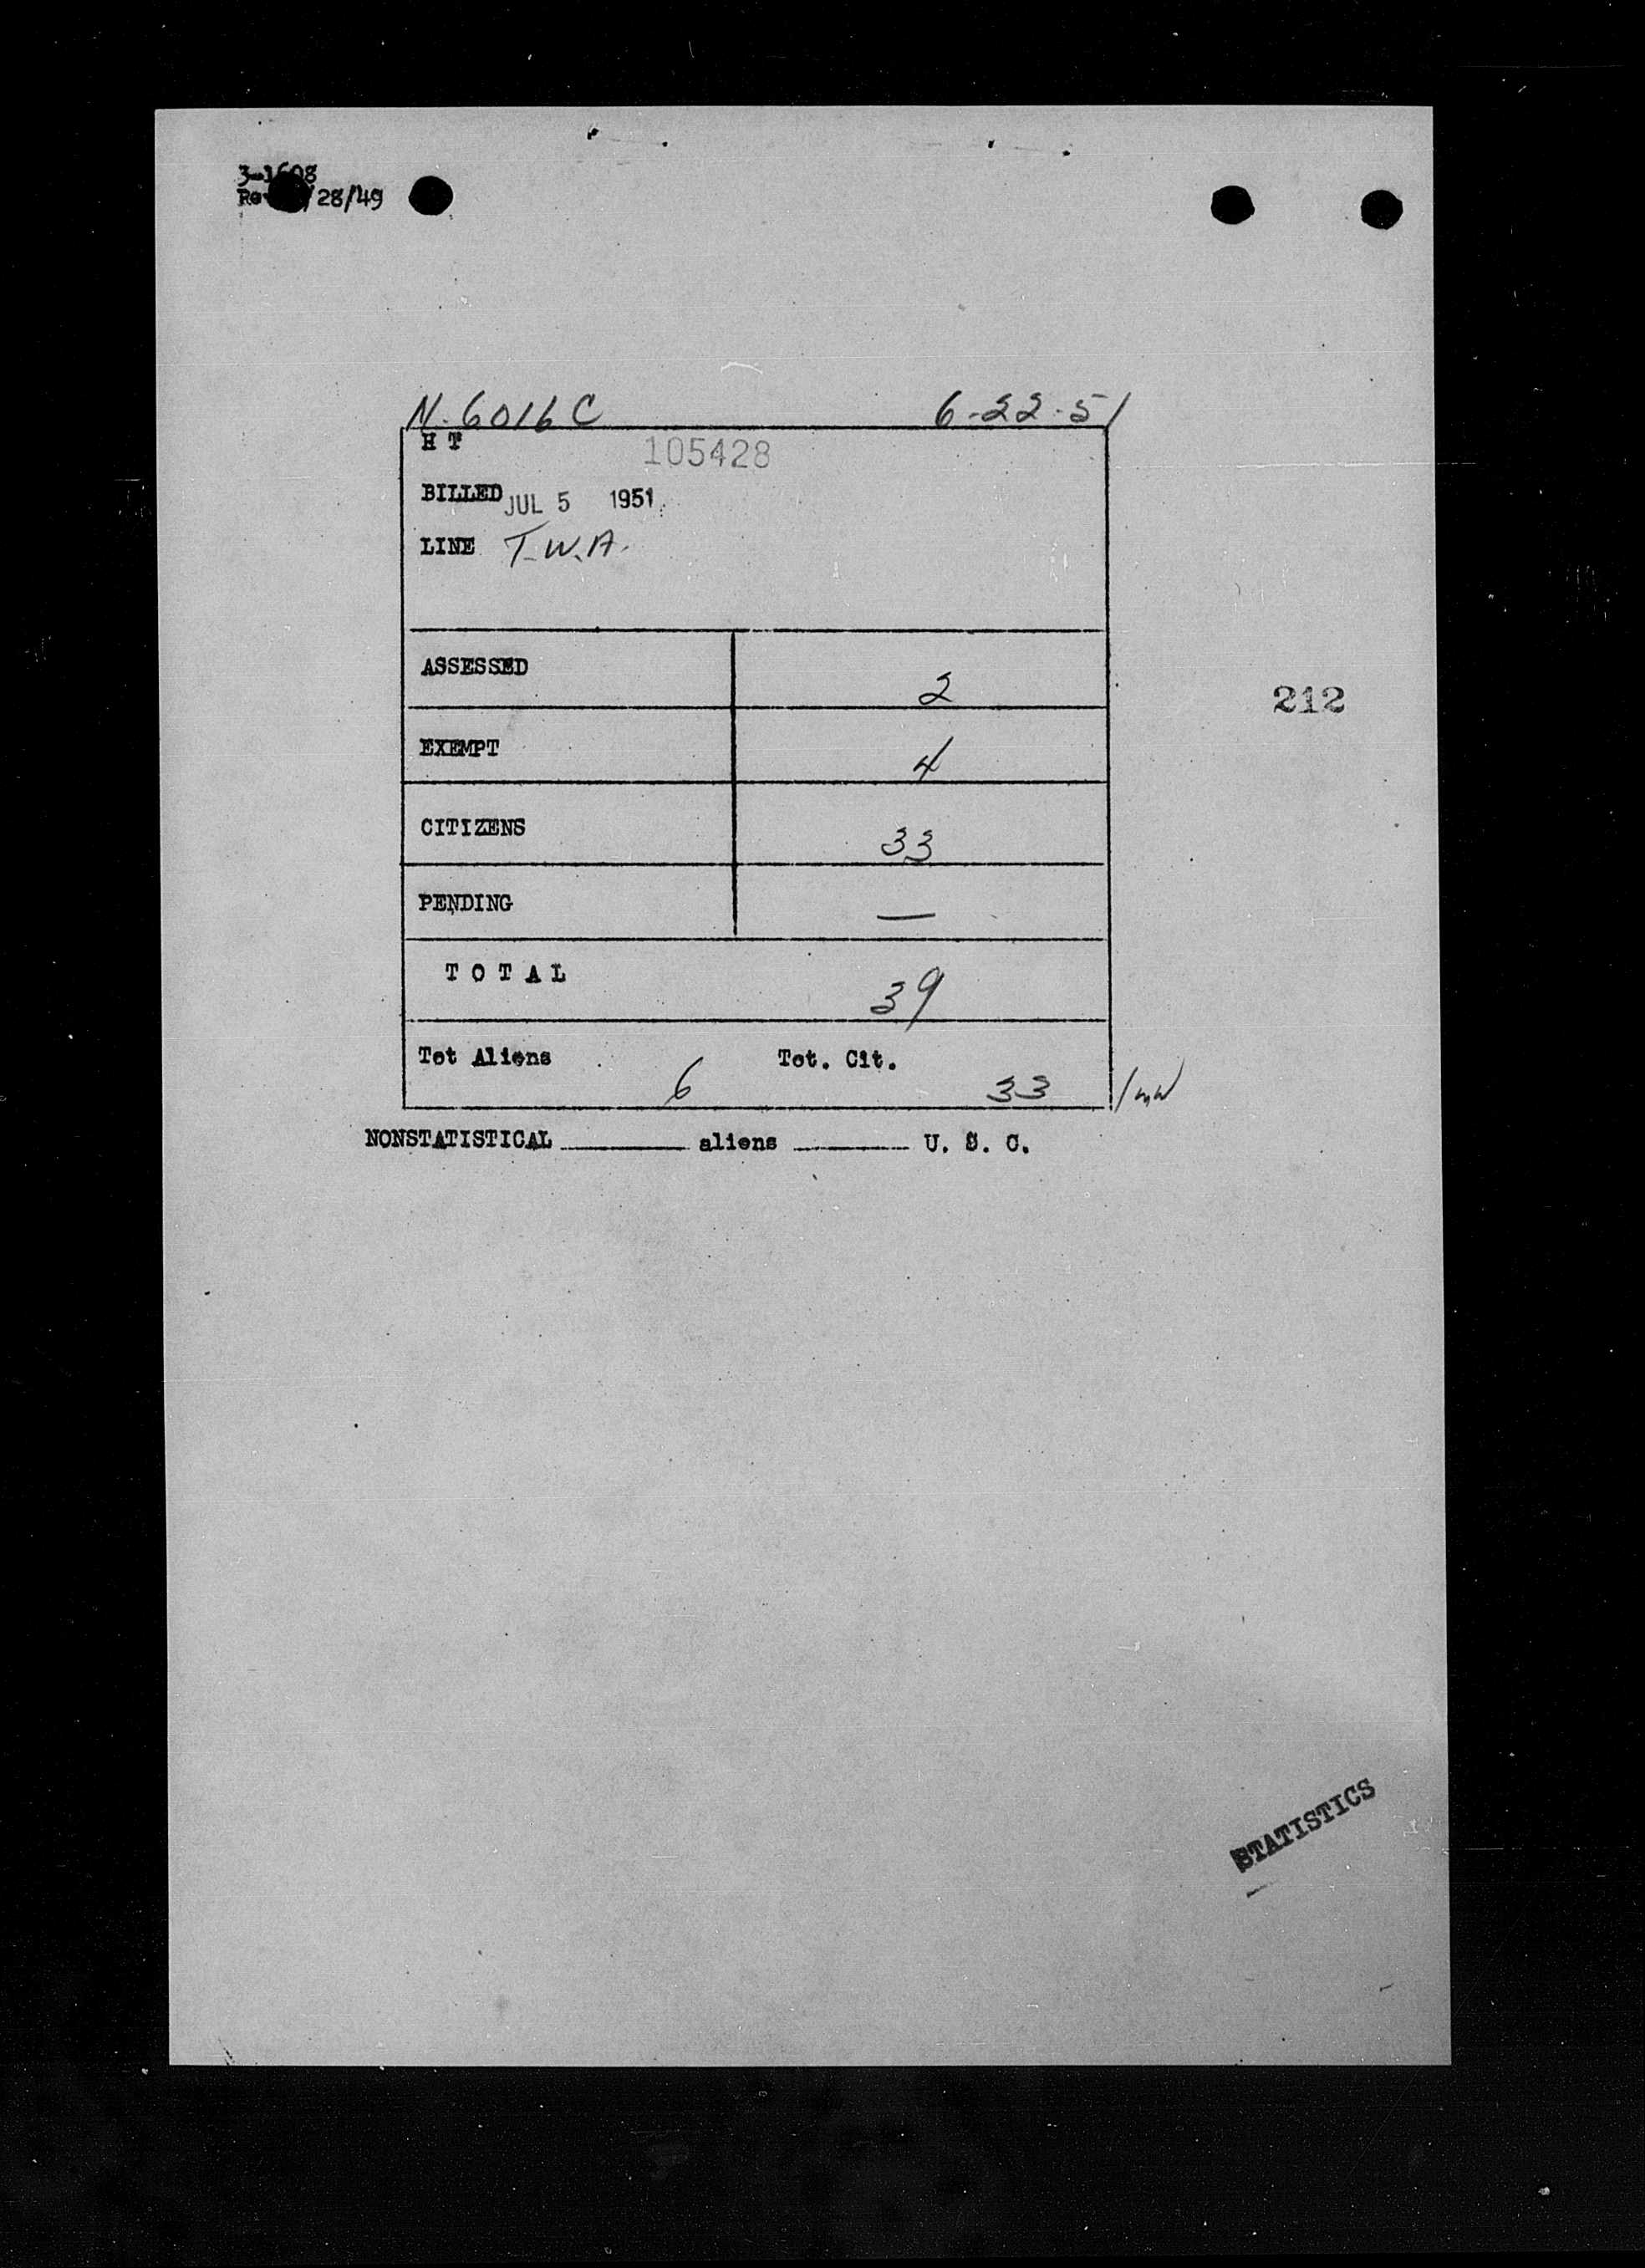 3-1608
Rev /28/49
N-6016C 6-22-51
H T 105428
BILLED JUL 5 1951
LINE T.W.A.
ASSESSED 2
212
EXEMPT 4
CITIZENS 33
PENDING —
TOTAL 39
Tot Aliens 6 Tot. Cit. 33
NONSTATISTICAL ________ aliens ________ U. S. C.
STATISTICS